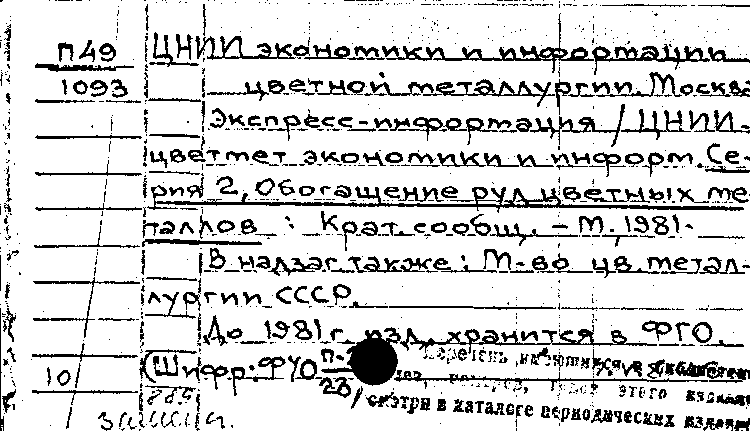 П49 ЦНИИ экономики и информации
1093 цветной металлургии. Москва
Экспресс-информация / ЦНИИ-
цветмет экономики и информ. Се-
рия 2, Обогащение руд цветных ме-
таллов : Крат. сообщ. – М., 1981-
В надзаг. также: М-во цв. метал-
лургии СССР.
До 1981 г. изд. хранится в ФГО.
10 (Шифр: ФУО П-
23/
Перечень имеющихся в библиотеке
этого издания
смотри в каталоге периодических изданий